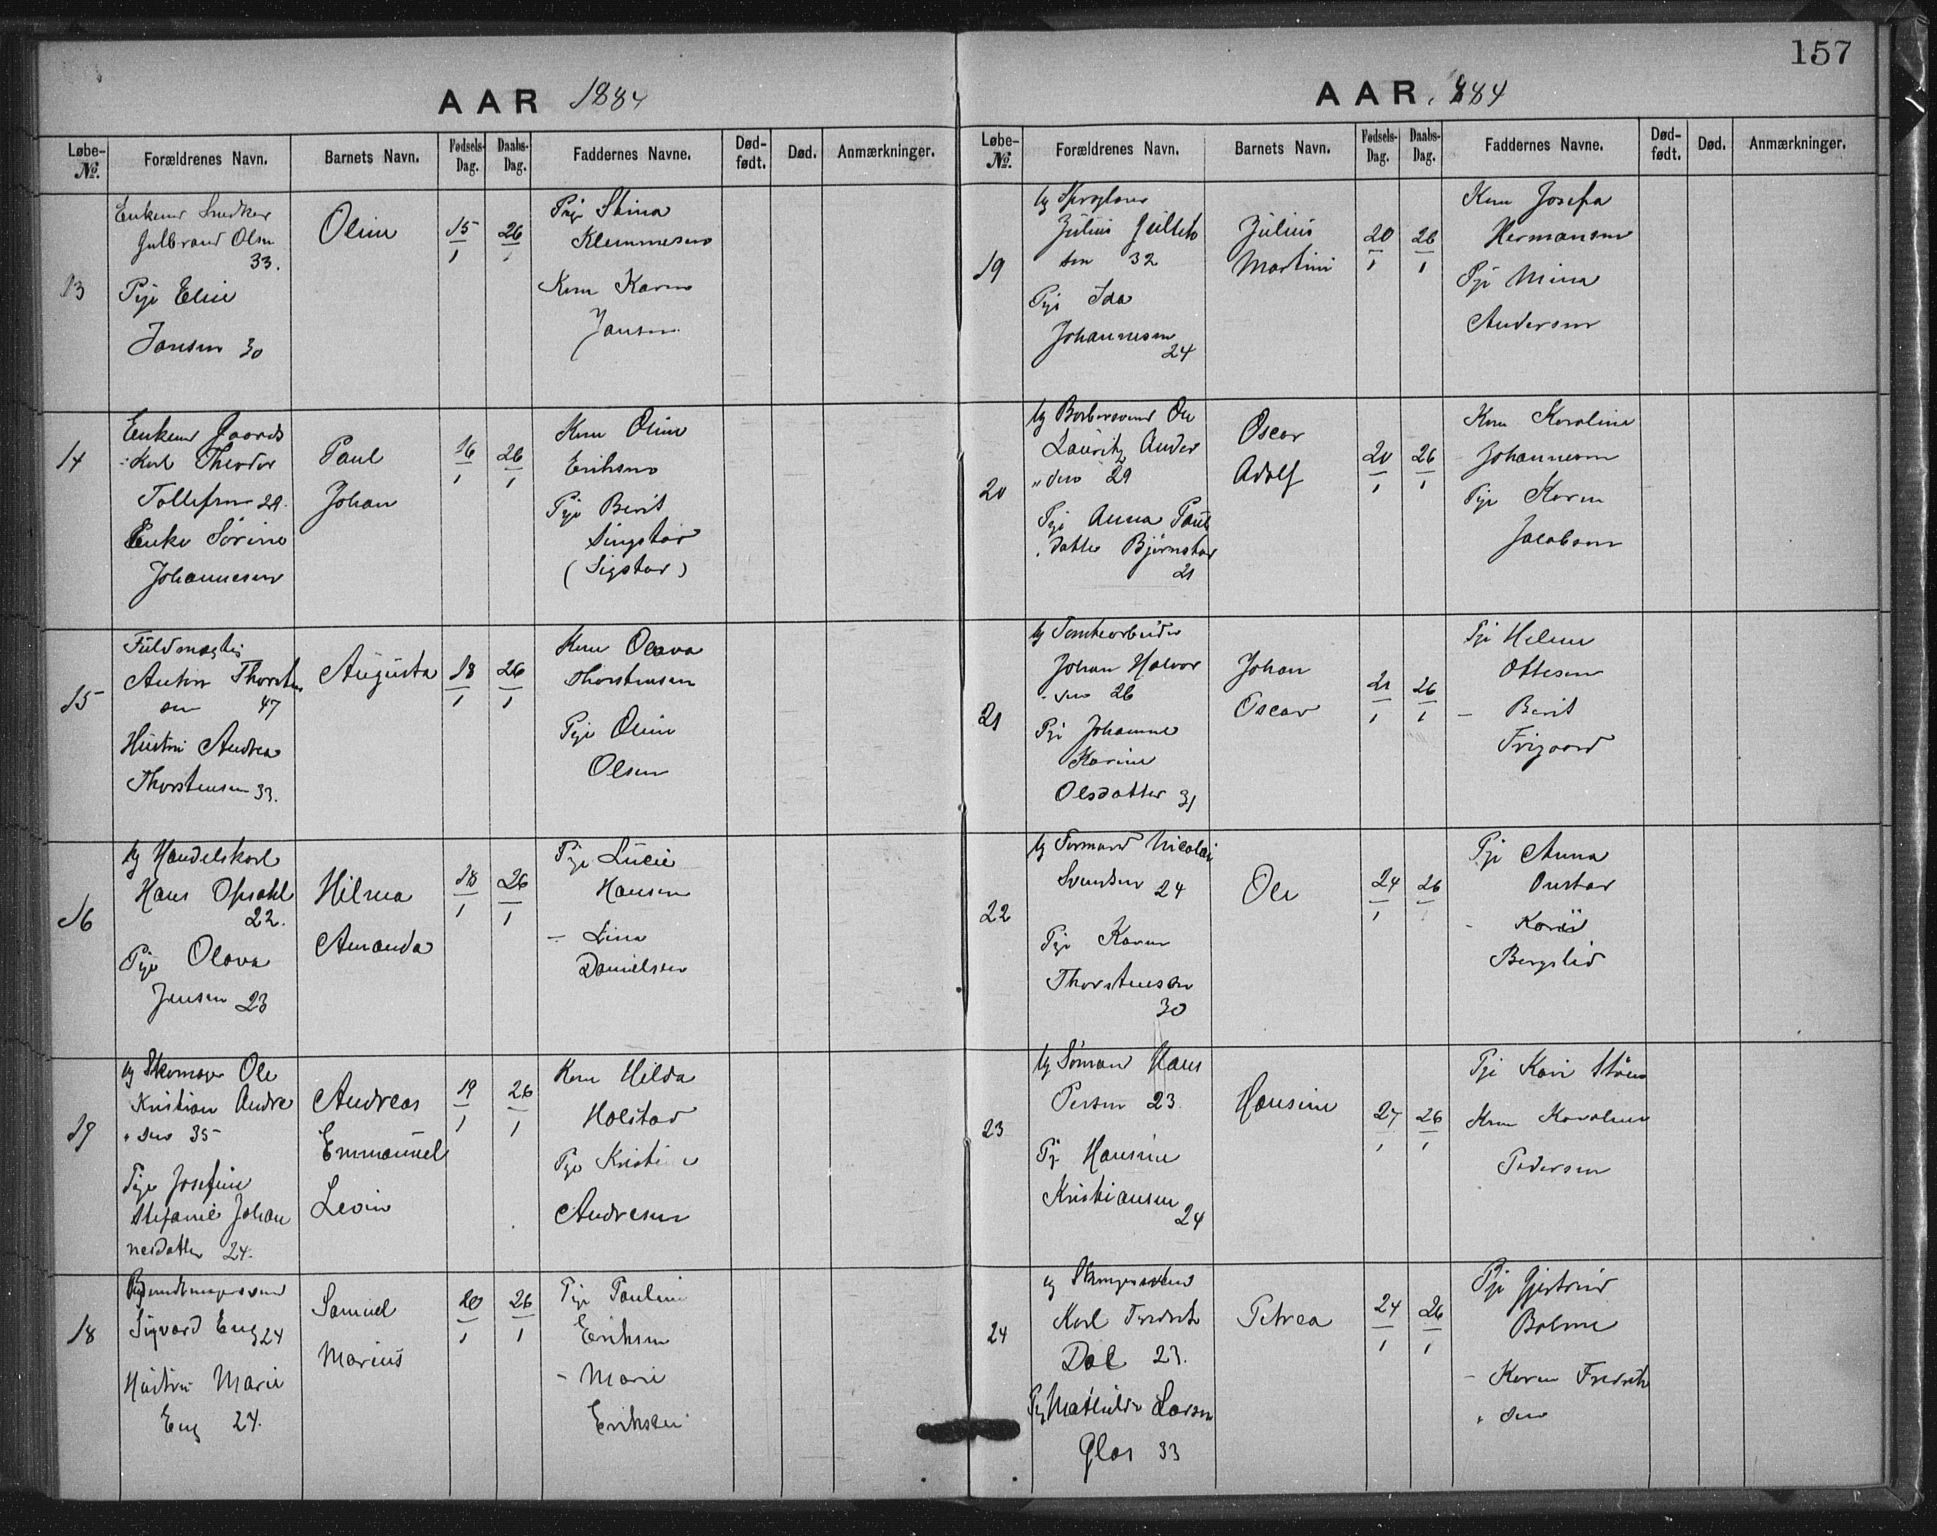 157
AAR 1884
Løbe-№.
Forældrenes Navn.
Barnets Navn.
Fødsels-Dag.
Daabs-Dag.
Faddernes Navne.
Død-født.
Død.
Anmærkninger.
13
Enkem Snedker
Gulbrand Olsen
33.
Pige Elise
Jansen 30
Oline
15/1
26/1
Pige Stina
Klemmesen
Kone Karen
Jansen
14
Enkem Gaards
Karl Theodor
Tollefsen 29.
Enke Sørine
Johannesen
Paul
Johan
16/1
26/1
Kone Oline
Eriksen
Pige Berit
Singstar
(Sigstar)
15
Fuldmægtig
Anton Thorsten
sen 47
Hustru Andrea
Thorstensen 33.
Augusta
18/1
26/1
Kone Olava
Thorstensen
Pige Oline
Olsen
16
Ug Handelskarl
Hans Opsahl
22.
Pige Olava
Jensen 23
Hilma
Amanda
18/1
26/1
Pige Lucie
Hansen
— Lina
Danielsen
19
Ug Skomager Ole
Kristian Andre
" sen 35
Pige Josefine
Stefanie Johan
nesdatter 24.
Andreas
Emmanuel
Levin
19/1
26/1
Kone Hilda
Holstad
Pige Kristine
Andresen
18
Sigvard Eng 24
Hustru Marie
Eng 24.
Samuel
Marius
20/1
26/1
Pige Pauline
Eriksen
- Marie
Eriksen
AAR 1884
Løbe-№.
Forældrenes Navn.
Barnets Navn.
Fødsels-Dag.
Daabs-Dag.
Faddernes Navne.
Død-født.
Død.
Anmærkninger.
19
Ug
Julius
sen 32
Pige Ida
Johannesen
24
Julius
Martin
20/1
26/1
Kone Josefa
Hermansen
Pige Mina
Andersen
20
Ug Barbersvend Ole
Lauritz Ander
" sen 29
Pige Anna Pauls
datter Bjørnstar
21
Oscar
Adolf
20/1
26/1
Kone Karoline
Johannesen
Pige Karen
Jacobsen
21
Ug Tomtearbeider
Johan Halvor
- sen 26
Pige Johanne
Karine
Olsdatter 31
Johan
Oscar
21/1
26/1
Pige Helene
Ottesen
— Berit
Frigaard
22
Ug Formand Nicolai
Svendsen 24
Pige Karen
Thorstensen
30
Ole
24/1
26/1
Pige Anna
Onstar
-
Bergslid
23
Ug Sømand Hans
Persen 23.
Pige Hansine
Kristiansen
24
Hansine
24/1
26/1
Pige Kari Støen
Kone Karoline
Pedersen
24
Ug
Karl Fredrik
Dal 23.
Pige Mathilde Larsen
Glas 33
Petrea
24/1
26/1
Pige Gjertrud
Bolme
- Karen Fredrik
" sen